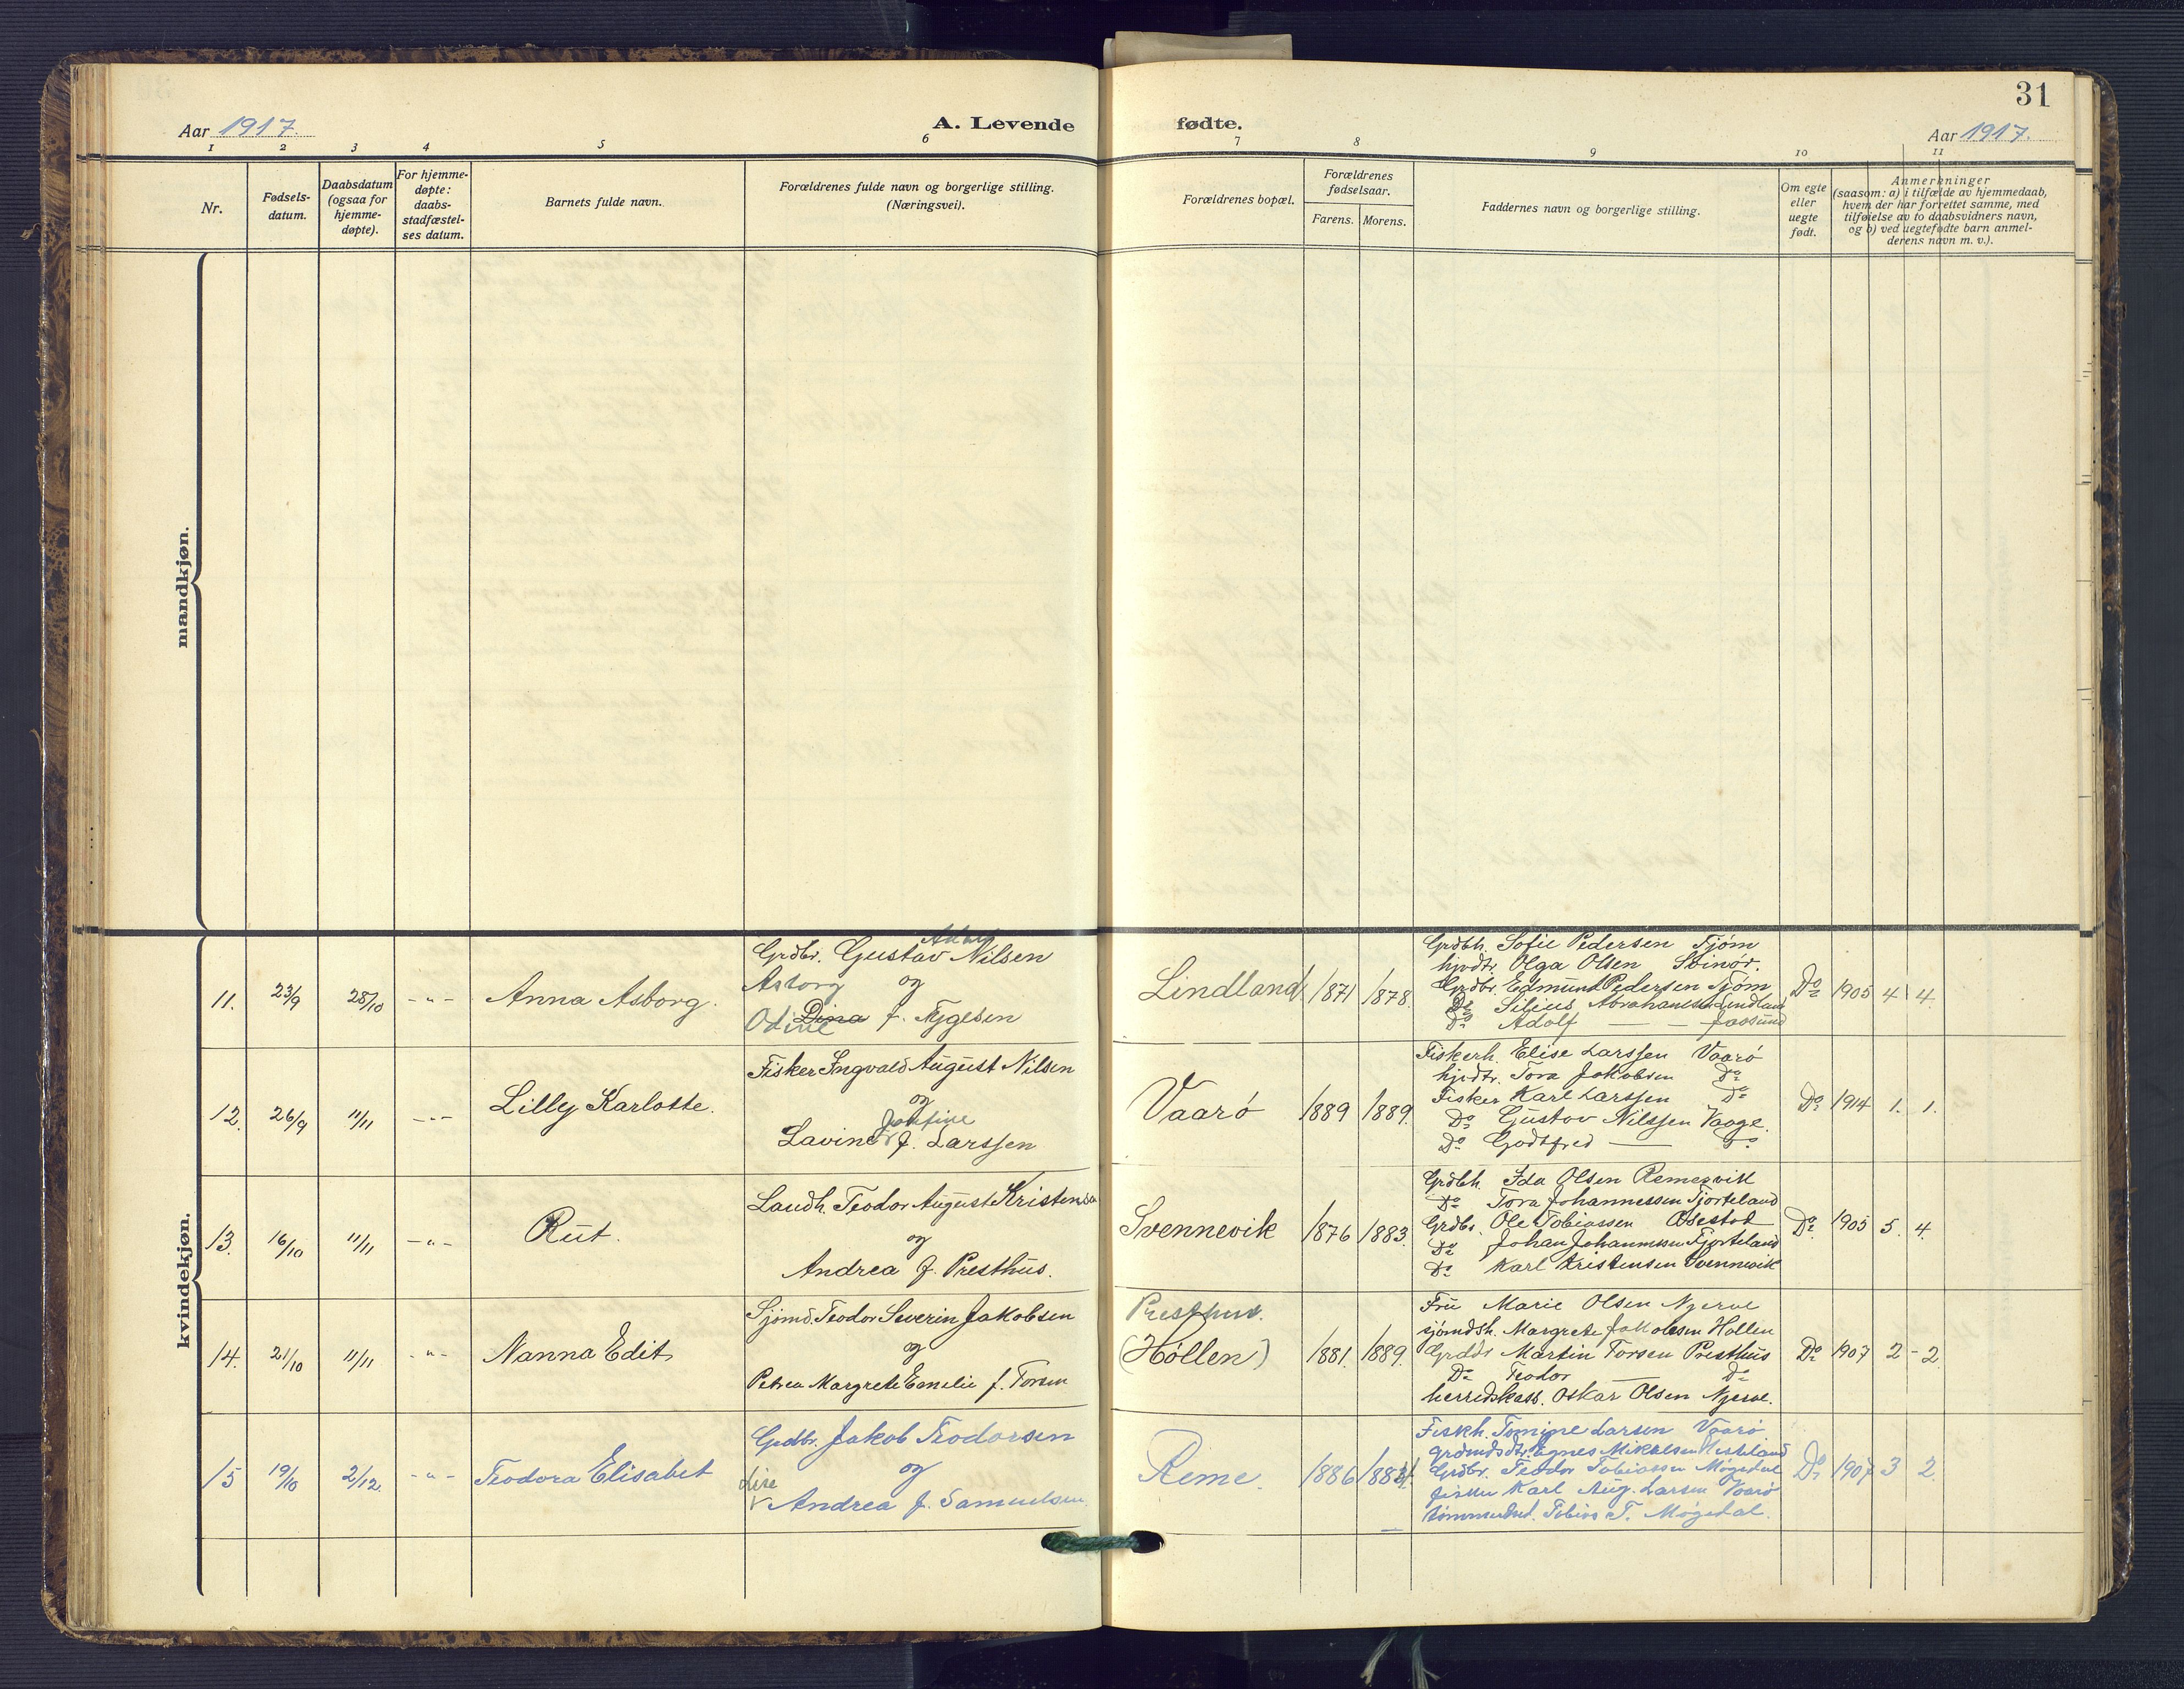 31
Aar 1917.
A. Levende fødte.
Aar 1917.
1 2 3 4 5 6 7 8 9 10 11
Nr.
Fødsels-
datum.
Daabsdatum
(ogsaa for
hjemme-
døpte).
For hjemme-
døpte:
daabs-
stadfæstel-
ses datum.
Barnets fulde navn.
Forældrenes fulde navn og borgerlige stilling.
(Næringsvei).
Forældrenes bopæl.
Forældrenes
fødselsaar.
Farens. Morens.
Faddernes navn og borgerlige stilling.
Om egte
eller
uegte
født.
Anmerkninger
(saasom: a) i tilfælde av hjemmedaab,
hvem der har forrettet samme, med
tilføielse av to daabsvidners navn,
og b) ved uegtefødte barn anmel-
derens navn m. v.).
mandkjøn.
kvindekjøn.
11. 23/9 28/10 -"- Anna Asborg.
Grdbr. Gustav Nilsen
Asborg og
Odine Dina f. Tygesen
Lindland 1871 1878.
Grdbh. Sofie Pedersen Tjøm
hjvdtr. Olga Olsen Svinør.
Grdbr. Edmund Pedersen Tjøm
Do Silius Abrahamsen Lindland
Do Adolf — — Jaasund
Do 1905 4 4.
12. 26/9 11/11 -"- Lilly Karlotte.
Fisker Ingvald August Nilsen
og
Josefine
Lavine f. Larssen
Vaarø 1889 1889.
Fiskerh. Elise Larssen Vaarø
hjvdtr. Tora Jakobsen Do
Fisker Karl Larssen Do
Do Gustav Nilssen Vaage.
Do Godtfred — Do
Do 1914 1. 1.
13. 16/10 11/11 -"- Rut.
Landh. Teodor August Kristensen
og
Andrea f. Presthus.
Svennevik 1876 1883.
Grdbh. Ida Olsen Remesvik
Do Tora Johannessen Tjorteland
Grdbr. Ole Tobiassen Osestad
Do Johan Johannessen Tjorteland
Do Karl Kristensen Svennevik
Do 1905 5. 4.
14. 21/10 11/11 -"- Nanna Edit
Sjømd. Teodor Severin Jakobsen
og
Petrea Margrete Emelie f. Torsen
Presthus.
(Høllen) 1881. 1889.
Fru Marie Olsen Njerve
sjømdsh. Margrete Jakobsen Høllen
Grdbr Martin Torsen Presthus
Do Teodor — Do
herredskass. Oskar Olsen Njerve.
Do 1907 2 - 2
15 19/10 2/12. -"- Teodora Elisabet
Grdbr. Jakob Teodorsen
og
Lise
Andrea f. Samuelsen
Reme. 1886
Fiskh. Tomine Larsen Vaarø
Agnes Mikalsen
Grdbr. Teodor Tobiassen Møgedal
fisker Karl Aug. Larsen Vaarø
tømmermd. Tobias T. Møgedal.
Do 1907 3 2.